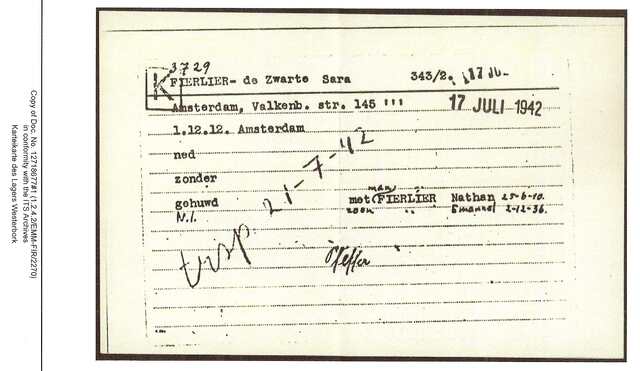 Copy of Doc. No. 12718677#1 (1.2.4.2/EMM-FIR/2270)
in conformity with the ITS Archives
Karteikarte des Lagers Westerbork
K
3729
FIERLIER- de Zwarte Sara 343/2. 17 JU
Amsterdam, Valkenb. str. 145 III 17 JULI 1942
1.12.12. Amsterdam
ned
zonder
gehuwd met man FIERLIER Nathan 25-6-10.
N.I. zoon " Emanuel 2-12-36.
trsp. 21-7-42
Pfeffer